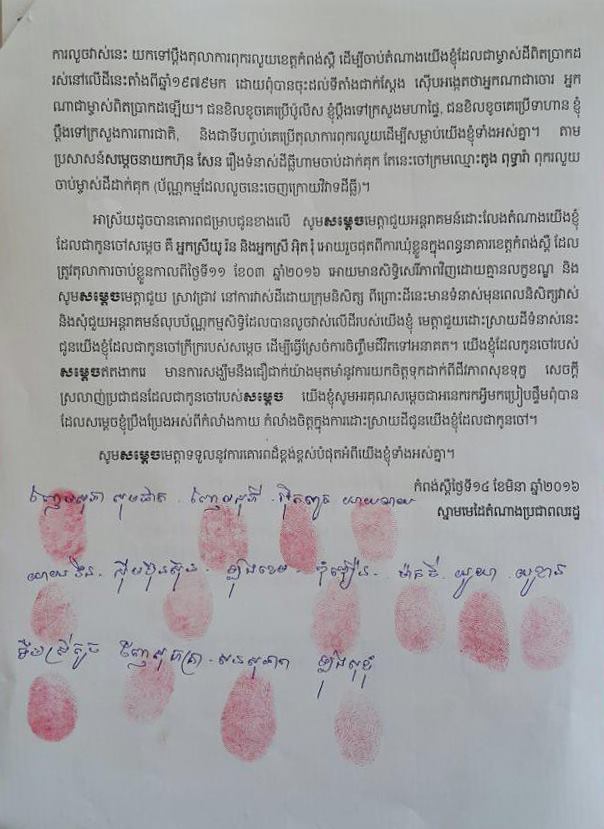 ការលួចវាស់នេះ យកទៅប្ដឹងតុលាការពុករលួយខេត្តកំពង់ស្ពឺ ដើម្បីចាប់តំណាងយើងខ្ញុំដែលជាម្ចាស់ដីពិតប្រាកដ
រស់នៅលើដីនេះតាំងពីឆ្នាំ១៩៧៩មក ដោយពុំបានចុះដល់ទីតាំងជាក់ស្ដែង ស៊ើបអង្កេតថាអ្នកណាជាចោរ អ្នក
ណាជាម្ចាស់ពិតប្រាកដឡើយ។ ជនខិលខូចគេប្រើប៉ូលីស ខ្ញុំប្ដឹងទៅក្រសួងមហាផ្ទៃ, ជនខិលខូចគេប្រើទាហាន ខ្ញុំ
ប្ដឹងទៅក្រសួងការពារជាតិ, និងជាទីបញ្ចប់គេប្រើតុលាការពុករលួយដើម្បីសម្លាប់យើងខ្ញុំទាំងអស់គ្នា។ តាម
ប្រសាសន៍សម្ដេចនាយកហ៊ុន សែន រឿងទំនាស់ដីធ្លីហាមចាប់ដាក់គុក តែនេះចៅក្រមឈ្មោះតូង ពុទ្ធារ៉ា ពុករលួយ
ចាប់ម្ចាស់ដីដាក់គុក (ប័ណ្ណកម្មដែលលួចនេះចេញក្រោយវិវាទដីធ្លី)។
អាស្រ័យដូចបានគោរពជម្រាបជូនខាងលើ សូមសម្ដេចមេត្តាជួយអន្តរាគមន៍ដោះលែងតំណាងយើងខ្ញុំ
ដែលជាកូនចៅសម្ដេច គឺ អ្នកស្រីយូ រ៉ន និងអ្នកស្រី អ៊ិត រុំ អោយរួចផុតពីការឃុំខ្លួនក្នុងពន្ធនាគារខេត្តកំពង់ស្ពឺ ដែល
ត្រូវតុលាការចាប់ខ្លួនកាលពីថ្ងៃទី១១ ខែ០៣ ឆ្នាំ២០១៦ អោយមានសិទ្ធិសេរីភាពវិញដោយគ្មានលក្ខខណ្ឌ និង
សូមសម្ដេចមេត្តាជួយ ស្រាវជ្រាវ នៅការវាស់ដីដោយក្រុមនិស្សិត ពីព្រោះដីនេះមានទំនាស់មុនពេលនិស្សិតវាស់
និងសុំជួយអន្តរាគមន៍លុបប័ណ្ណកម្មសិទ្ធិដែលបានលួចវាស់លើដីរបស់យើងខ្ញុំ មេត្តាជួយដោះស្រាយដីទំនាស់នេះ
ជូនយើងខ្ញុំដែលជាកូនចៅក្រីក្ររបស់សម្ដេច ដើម្បីធ្វើស្រែចំការចិញ្ចឹមជីវិតទៅអនាគត។ យើងខ្ញុំដែលកូនចៅរបស់
សម្ដេចឥតងាករេ មានការសង្ឃឹមនឹងជឿជាក់យ៉ាងមុតមាំនូវការយកចិត្តទុកដាក់ពីជីវភាពសុខទុក្ខ សេចក្ដី
ស្រលាញ់ប្រជាជនដែលជាកូនចៅរបស់សម្ដេច យើងខ្ញុំសូមអរគុណសម្ដេចជាអនេករកអ្វីមកប្រៀបផ្ទឹមពុំបាន
ដែលសម្ដេចខ្ញុំប្រឹងប្រែងអស់ពីកំលាំងកាយ កំលាំងចិត្តក្នុងការដោះស្រាយដីជូនយើងខ្ញុំដែលជាកូនចៅ។
សូមសម្ដេចមេត្តាទទួលនូវការគោរពដ៏ខ្ពង់ខ្ពស់បំផុតអំពីយើងខ្ញុំទាំងអស់គ្នា។
កំពង់ស្ពឺថ្ងៃទី១៤ ខែមិនា ឆ្នាំ២០១៦
ស្នាមមេដៃតំណាងប្រជាពលរដ្ឋ